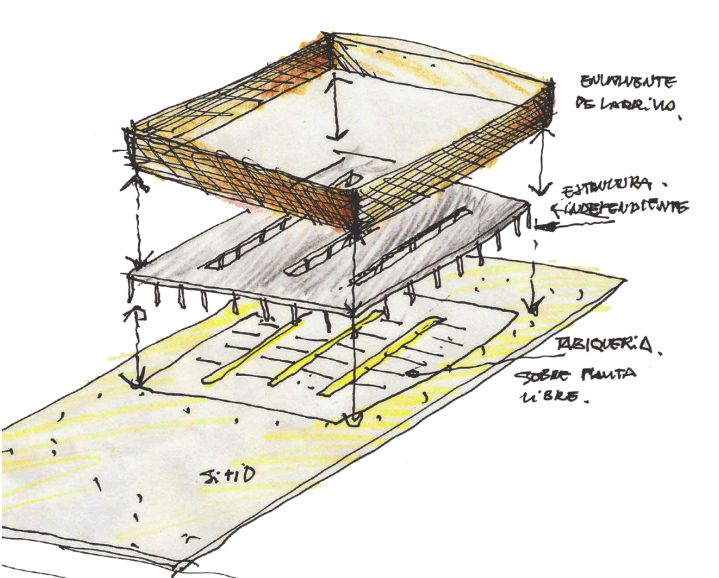 ENVOLVENTE
DE LADRILLO.
ESTRUCTURA.
INDEPENDIENTE
TABIQUERÍA.
SOBRE PLANTA
LIBRE.
SITIO